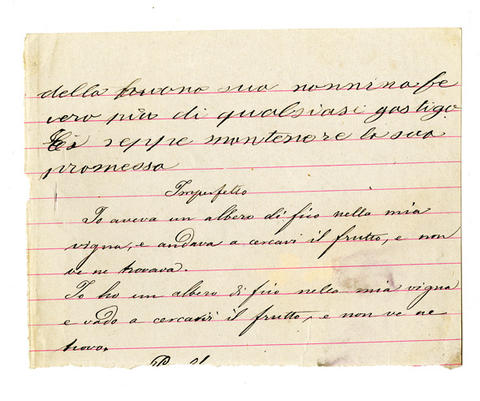 della buona sua nonnina fe
cero più di qualsiasi gastigo.
Ei seppe mantenere la sua
promessa
Imperfetto
Io aveva un albero di fico nella mia
vigna, e andava a cercarvi il frutto, e non
ve ne trovava.
Io ho un albero di fico nella mia vigna
e vado a cercarvi il frutto, e non ve ne
trovo.